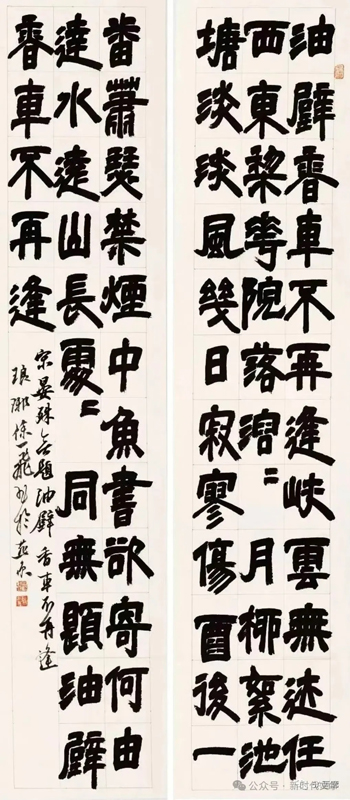 油壁香車不再逢峽雲無迹任
西東棃花院落溶〻月柳絮池
塘淡淡風幾日寂寥傷酉後一
番蕭瑟禁煙中魚書欲寄何由
達水遠山長處〻同無題油壁
香車不再逢
宋晏殊無題油壁香車不再逢
琅琊徐一飛於燕京
公众号 · 新时代